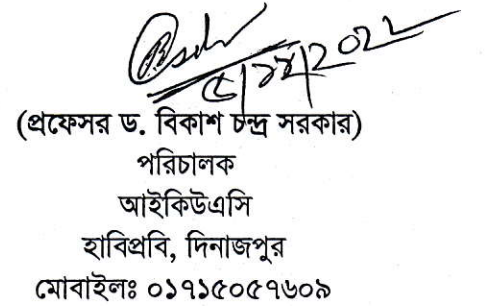 (প্রফেসর ড. বিকাশ চন্দ্র সরকার)
পরিচালক
আইকিউএসি
হাবিপ্রবি, দিনাজপুর
মোবাইলঃ ০১৭১৫০৫৭৬০৯